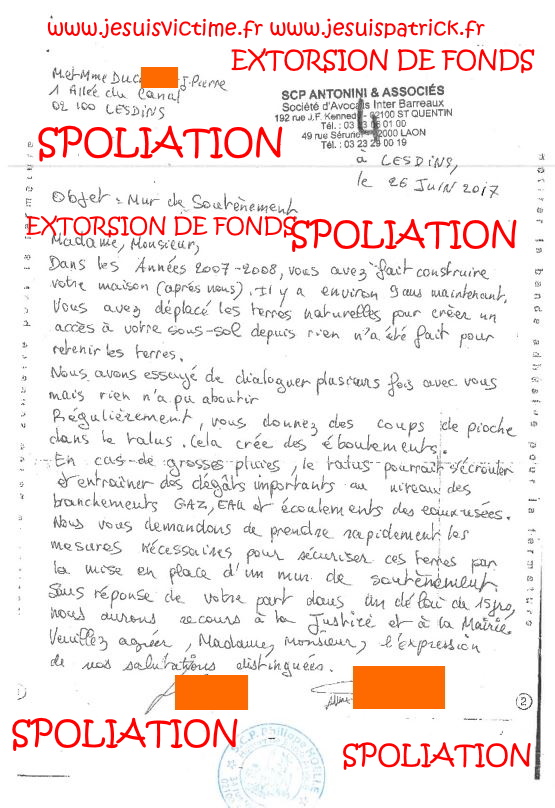 www.jesuisvictime.fr www.jesuispatrick.fr
EXTORSION DE FONDS
M. et Mme Duc J-Pierre
1 Allée du Canal
02 100 LESDINS
SCP ANTONINI & ASSOCIÉS
Société d'Avocats Inter Barreaux
192 rue J.F. Kennedy 02100 ST QUENTIN
Tél. : 03 23 01 00
49 rue Sérurier 02000 LAON
Tél. : 03 23 29 00 19
4
SPOLIATION
à LESDINS,
le 26 JUIN 2017
Objet : Mur de Soutènement
EXTORSION DE FONDS
SPOLIATION
Madame, Monsieur,
Dans les Années 2007-2008, vous avez fait construire
votre maison (après nous). Il y a environ 9 ans maintenant.
Vous avez déplacé les terres naturelles pour créer un
accès à votre sous-sol depuis rien n'a été fait pour
retenir les terres.
Nous avons essayé de dialoguer plusieurs fois avec vous
mais rien n'a pu aboutir
Régulièrement, vous donnez des coups de pioche
dans le talus. Cela crée des éboulements.
En cas de grosses pluies, le talus pourrait s'écrouler
et entraîner des dégâts importants au niveau des
branchements GAZ, EAU et écoulements des eaux usées.
Nous vous demandons de prendre rapidement les
mesures nécessaires pour sécuriser ces terres par
la mise en place d'un mur de soutènement.
Sans réponse de votre part dans un délai de 15 jrs,
nous aurons recours à la Justice et à la Mairie.
Veuillez agréer, Madame, Monsieur, l'expression
de nos salutations distinguées.
2
SPOLIATION
SPOLIATION
S.C.P. Philippe